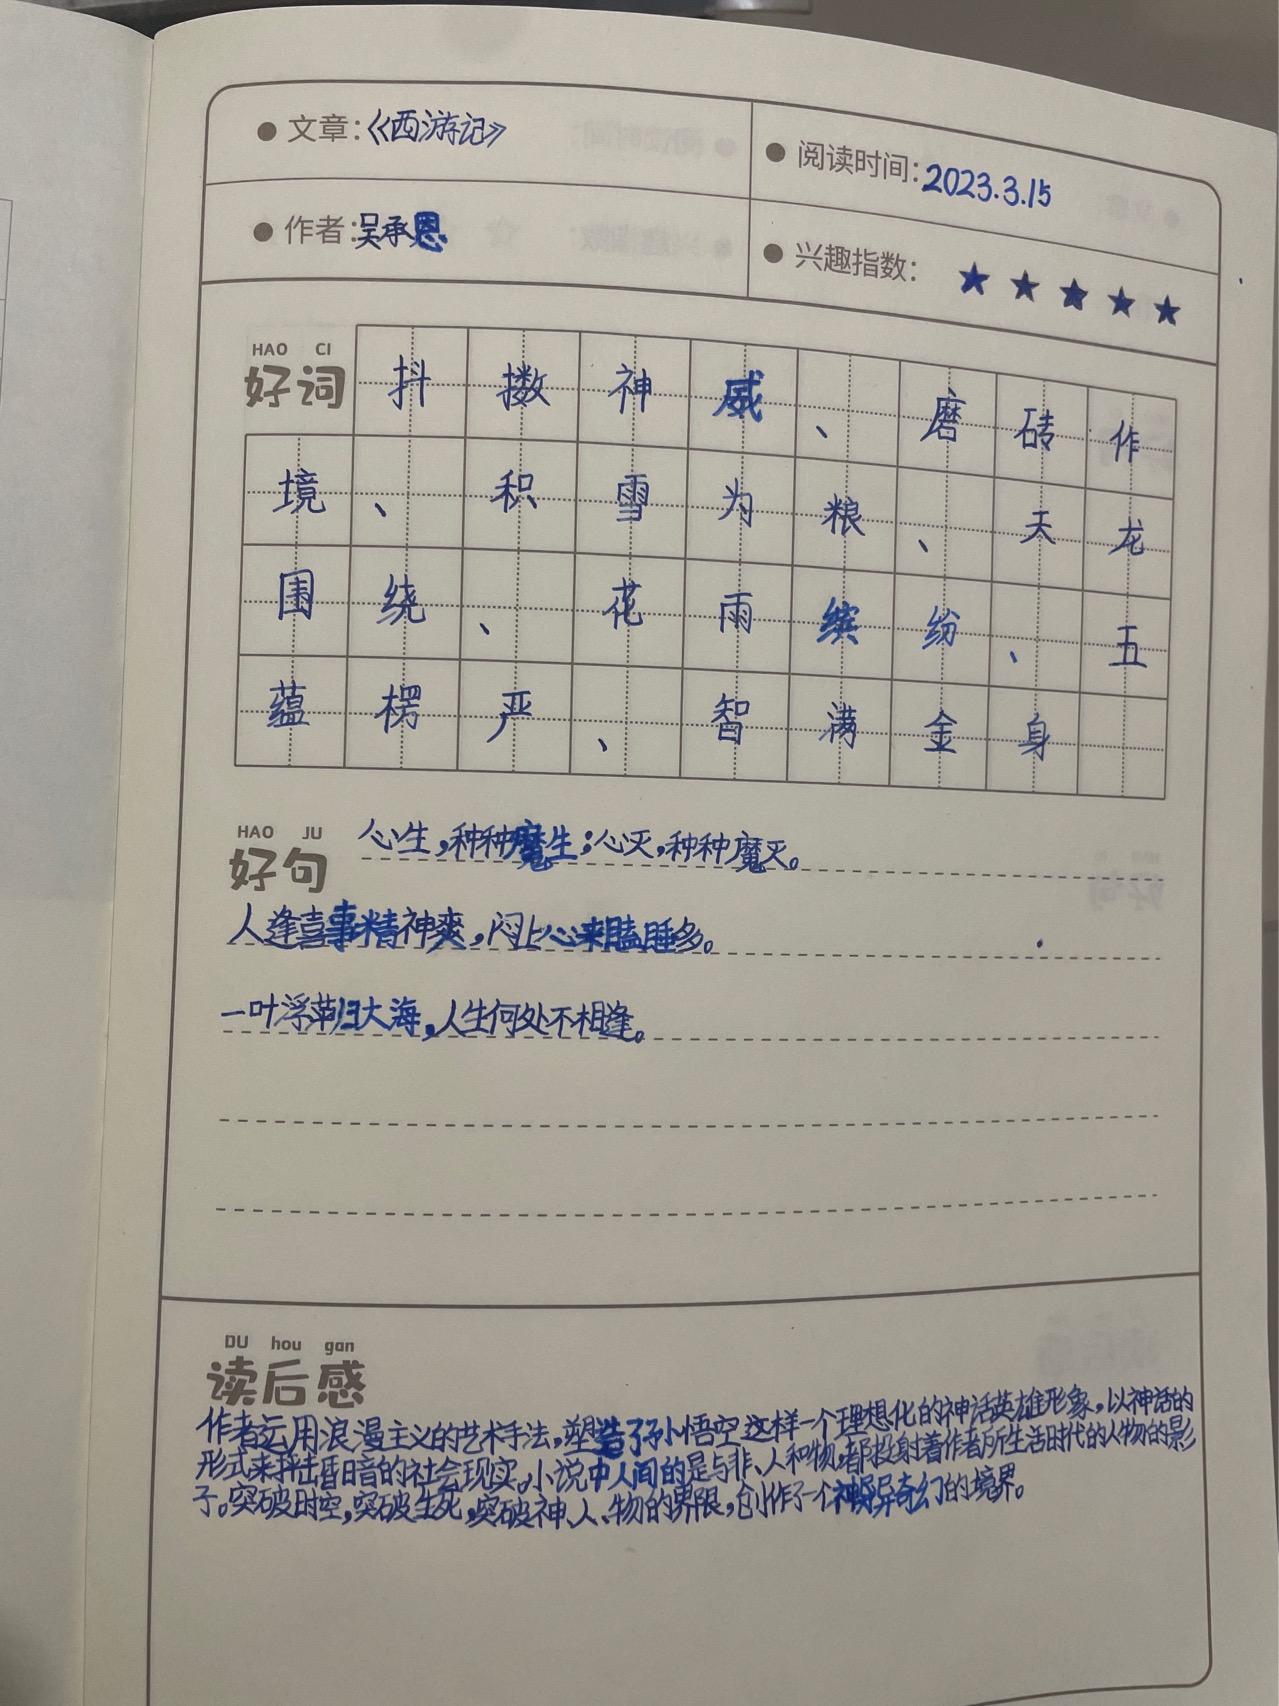 文章：《西游记》
阅读时间：2023.3.15
作者：吴承恩
兴趣指数：★★★★★
HAO CI
好词
抖擞神威、磨砖作
境、积雪为粮、天龙
围绕、花雨缤纷、五
蕴楞严、智满金身
HAO JU
好句
心生，种种魔生；心灭，种种魔灭。
人逢喜事精神爽，闷上心来瞌睡多。
一叶浮萍归大海，人生何处不相逢。
DU hou gan
读后感
作者运用浪漫主义的艺术手法，塑造了孙悟空这样一个理想化的神话英雄形象，以神话的
形式来抨击昏暗的社会现实。小说中人间的是与非、人和物，都投射着作者所生活时代的人物的影
子。突破时空，突破生死，突破神、人、物的界限，创作了一个神异奇幻的境界。